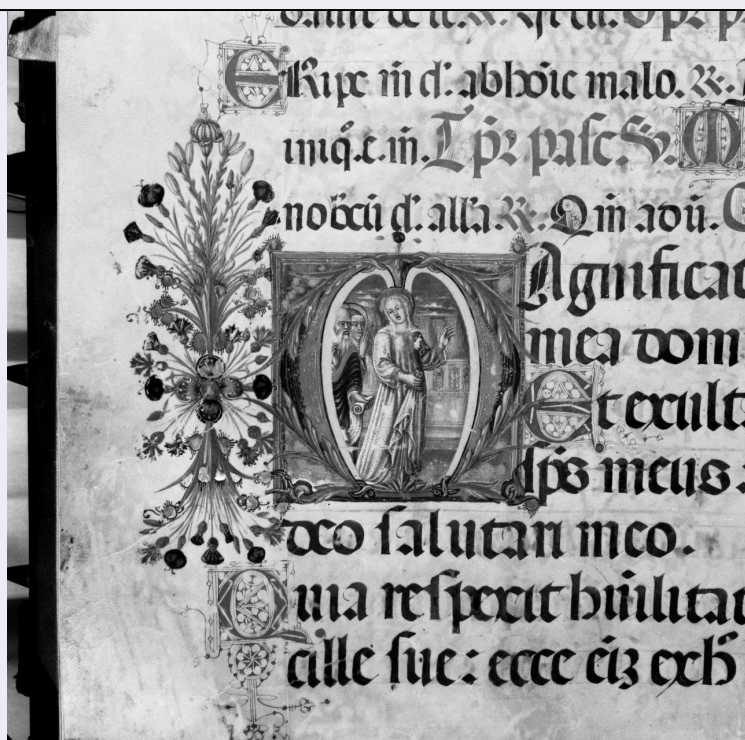 ERipe m̄ d'. abhoīe malo. R.
iniq̄.e.m̄. T p̄r pasc. V. M
nobcū d'. all'a. R. Qm̄ adiu.
MAgnificat
mea dom
Et exult
sps meus
deo salutari meo.
Quia respexit humilitat
cille sue: ecce eiz exh